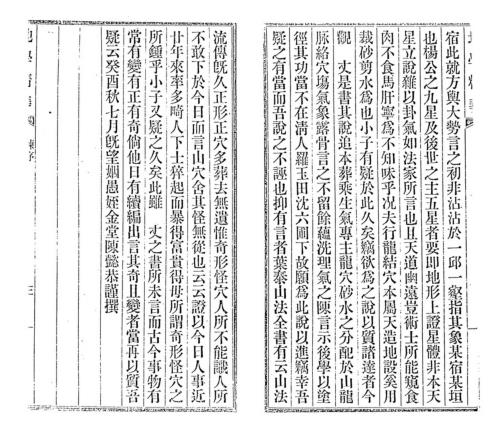 宿此就方輿大勢言之初非沾沾於一邱一壑指其象某宿某垣
也楊公之九星及後世之主五星者要即地形上證星體非本天
星立說雜以卦氣如法家所言也且天道幽遠豈術士所能窺食
肉不食馬肝寧爲不知味乎況夫行龍結穴本屬天造地設奚用
裁砂剪水爲也小子有疑於此久矣竊欲爲之說以質諸達者今
觀 丈是書其說追本葬乘生氣專主龍穴砂水之分配於山龍
脉絡穴場氣象露骨言之不留餘蘊洗理氣之陳言示後學以塗
徑其功當不在淸人羅玉田沈六圃下故願爲此說以進竊幸吾
疑之有當而吾說之不誣也抑有言者葉泰山法全書有云山法
流傳旣久正形正穴多葬去無遺惟奇形怪穴人所不能識人所
不敢下於今日而言山穴舍其怪無從也云云證以今日人事近
廿年來率多畸人下士猝起而暴得富貴得毋所謂奇形怪穴之
所鍾乎小子又疑之久矣此雖 丈之書所未言而古今事物有
常有變有正有奇倘他日有續編出言其奇且變者當再以質吾
疑云癸酉秋七月旣望姻愚姪金堂陳懿恭謹撰